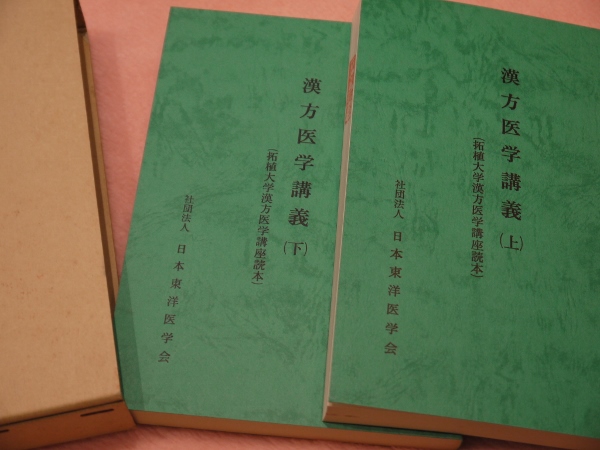 漢方医学講義(上)
(拓植大学漢方医学講座読本)
社団法人 日本東洋医学会
漢方医学講義(下)
(拓植大学漢方医学講座読本)
社団法人 日本東洋医学会